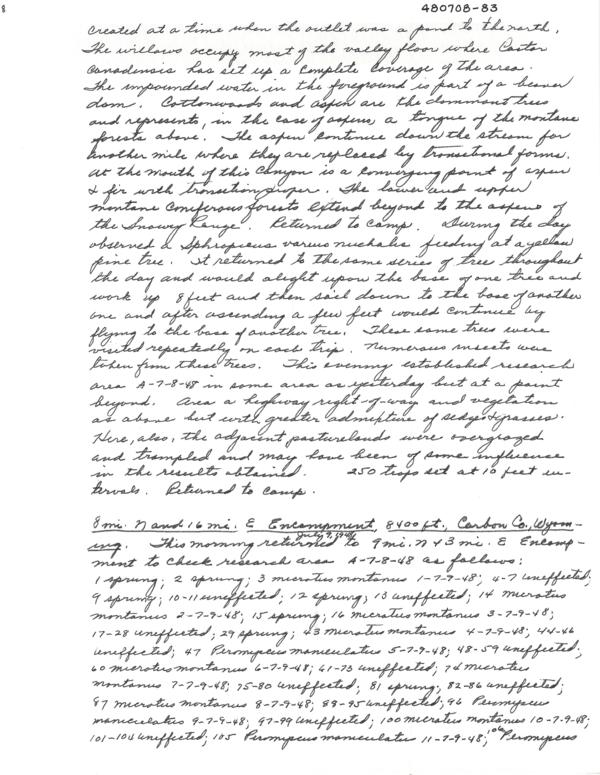 8
480708-83
created at a time when the outlet was a pond to the north.
The willows occupy most of the valley floor where Castor
Canadensis has set up a complete coverage of the area.
The impounded water in the foreground is part of a beaver
dam. Cottonwoods and aspen are the dominant trees
and represents, in the case of aspens, a tongue of the montane
forests above. The aspen continue down the stream for
another mile where they are replaced by transitional forms.
At the mouth of this Canyon is a converging point of aspen
& fir with transition proper. The lower and upper
montane Coniferous forests extend beyond to the aspens of
the Snowy Range. Returned to camp. During the day
observed a Sphrapicus varius nuchalis feeding at a yellow
pine tree. It returned to the same series of trees throughout
the day and would alight upon the base of one tree and
work up 8 feet and then sail down to the base of another
one and after ascending a few feet would continue by
flying to the base of another tree. These same trees were
visited repeatedly on each trip. Numerous insects were
taken from these trees. This evening established research
area A-7-8-48 in same area as yesterday but at a point
beyond. Area a highway right-of-way and vegetation
as above but with greater admixture of sedges & grasses.
Here, also, the adjacent pasturelands were overgrazed
and trampled and may have been of some influence
in the results obtained. 250 traps set at 10 feet in-
tervals. Returned to camp.
8 mi. N and 16 mi. E Encampment, 8400 ft., Carbon Co., Wyom-
ing. This morning returned July 9, 1948 to 9 mi. N & 3 mi. E Encamp-
ment to check research area A-7-8-48 as follows:
1 sprung; 2 sprung; 3 microtus montanus 1-7-9-48; 4-7 uneffected;
9 sprung; 10-11 uneffected; 12 sprung; 13 uneffected; 14 Microtus
montanus 2-7-9-48; 15 sprung; 16 microtus montanus 3-7-9-48;
17-28 uneffected; 29 sprung; 43 Microtus montanus 4-7-9-48; 44-46
uneffected; 47 Peromyscus maniculatus 5-7-9-48; 48-59 uneffected;
60 microtus montanus 6-7-9-48; 61-73 uneffected; 74 microtus
montanus 7-7-9-48; 75-80 uneffected; 81 sprung; 82-86 uneffected;
87 microtus montanus 8-7-9-48; 88-95 uneffected; 96 Peromyscus
maniculatus 9-7-9-48; 97-99 uneffected; 100 microtus montanus 10-7-9-48;
101-104 uneffected; 105 Peromyscus maniculatus 11-7-9-48; 106 Peromyscus